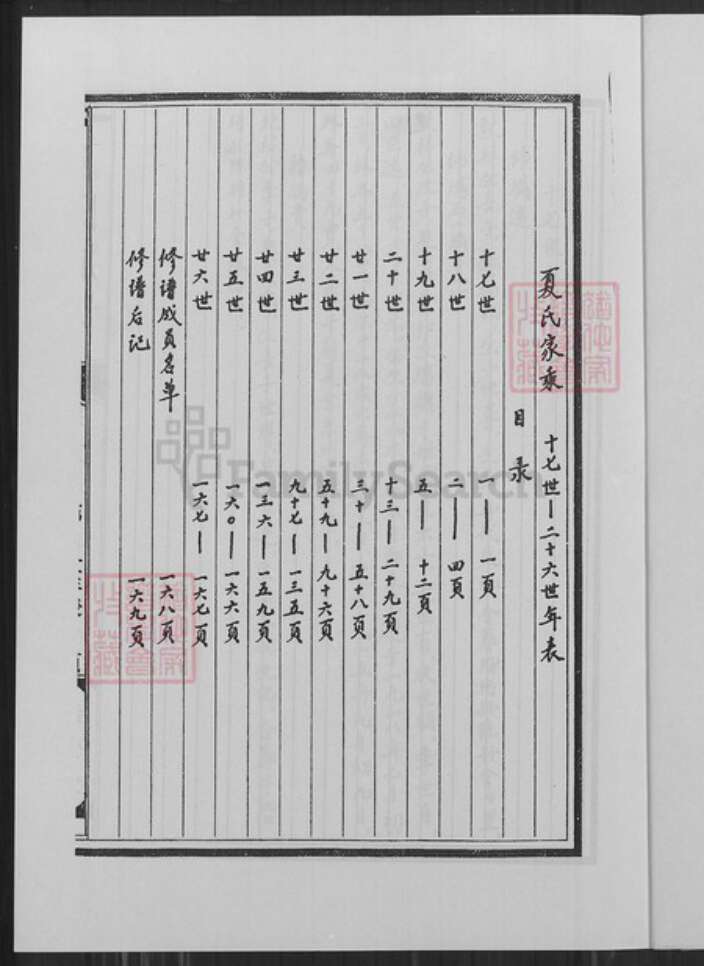 夏氏家乘 十七世—二十六世年表
目录
十七世 一——一頁
十八世 二——四頁
十九世 五——十二頁
二十世 十三—二十九頁
廿一世 三十—五十八頁
廿二世 五十九—九十六頁
廿三世 九十七—一三五頁
廿四世 一三六—一五九頁
廿五世 一六〇—一六六頁
廿六世 一六七—一六七頁
修谱成员名单 一六八頁
修谱后记 一六九頁
FamilySearch